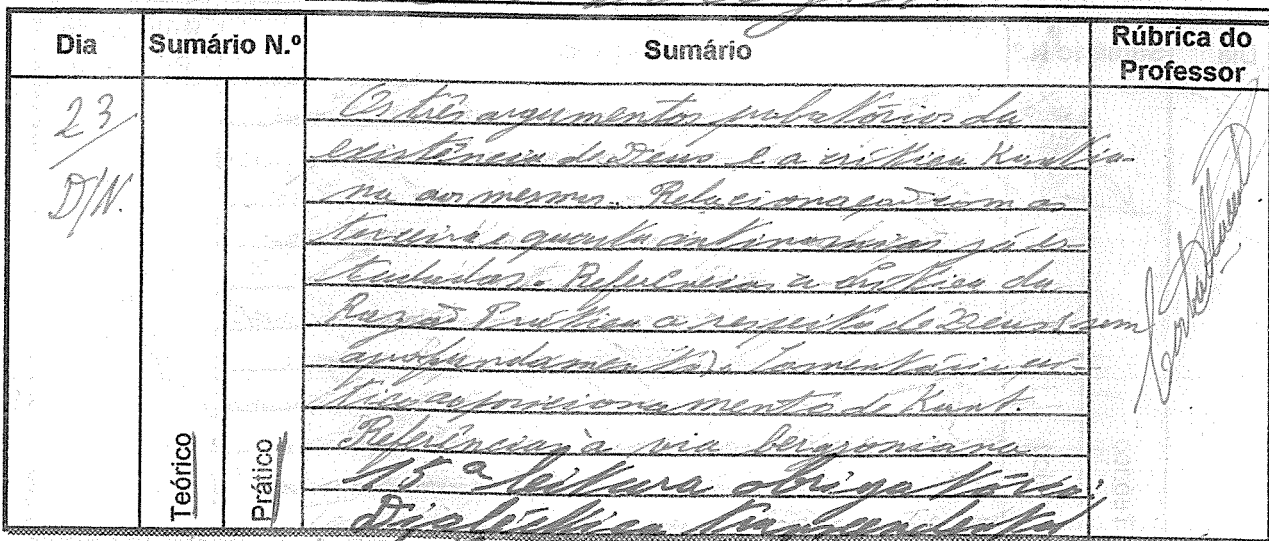 Dia Sumário N.º Sumário Rúbrica do Professor
23/D/N.
Os três argumentos probatórios da
existência de Deus e a crítica Kantia-
na aos mesmos. Relacionação com as
terceira e quarta antinomias já es-
tudadas. Referências à Crítica da
Razão Prática a respeito de Deus (sem
aprofundamento). Comentário crí-
tico ao posicionamento de Kant.
Referências à via bergsoniana
15ª leitura obrigatória:
Dialéctica transcendental
Teórico
Prático